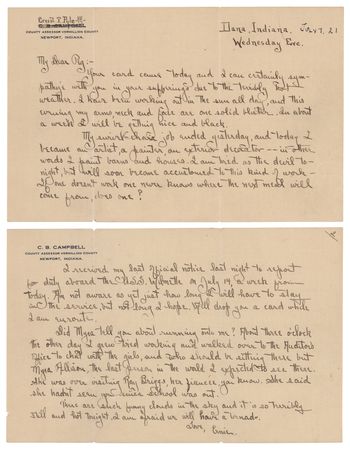 Ernie T. Pyle-!!!-
C. B. CAMPBELL
COUNTY ASSESSOR VERMILLION COUNTY
NEWPORT, INDIANA.
Dana, Indiana, July 7, 21
Wednesday Eve.
My dear Peg:-
Your card came today and I can certainly sym-
pathize with you in your sufferings due to the terribly hot
weather. I have been working out in the sun all day, and this
evening my arms neck and face are one solid blister. In about
a week I will be getting nice and black.
My surveyor's chain job ended yesterday, and today I
became an artist, a painter, an exterior decorator -- in other
words I paint barns and houses. I am tired as the devil to-
night, but will soon become accustomed to this kind of work -
If one doesn't work one never knows where the next meal will
come from, does one?
C. B. CAMPBELL
COUNTY ASSESSOR VERMILLION COUNTY
NEWPORT, INDIANA.
I received my last official notice last night to report
for duty aboard the U.S.S. Wilmette on July 14, a week from
today. Am not aware as yet just how long I will have to stay
in the service but not long I hope. Will drop you a card while
I am enroute.
Did Myra tell you about running onto me? About three oclock
the other day I grew tired working and walked over to the Auditor's
office to chat with the girls, and who should be sitting there but
Myra Allison, the last person in the world I expected to see there.
She was over visiting Ray Briggs, her fiancee, you know. She said
she hadn't seen you since school was out.
There are such funny clouds in the sky and it is so terribly
still and hot tonight, I am afraid we will have a tornado.
Love,
Ernie.